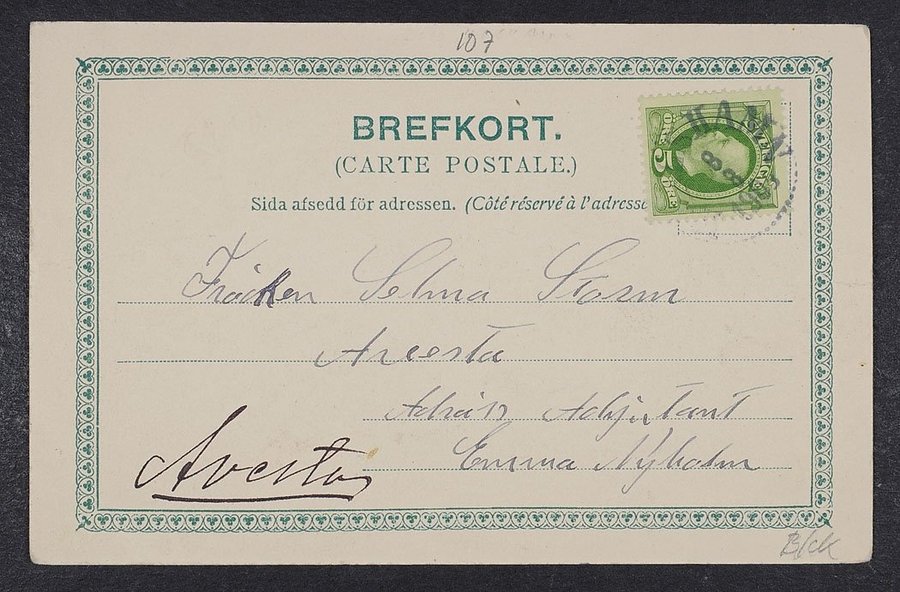 107
BREFKORT.
(CARTE POSTALE.)
Sida afsedd för adressen. (Côté réservé à l'adresse
5 ÖRE
HAMN
8
Fröcken Selma Storm
Arvesta
Adräss Adhjutant
Emma Nyholm
Avesta